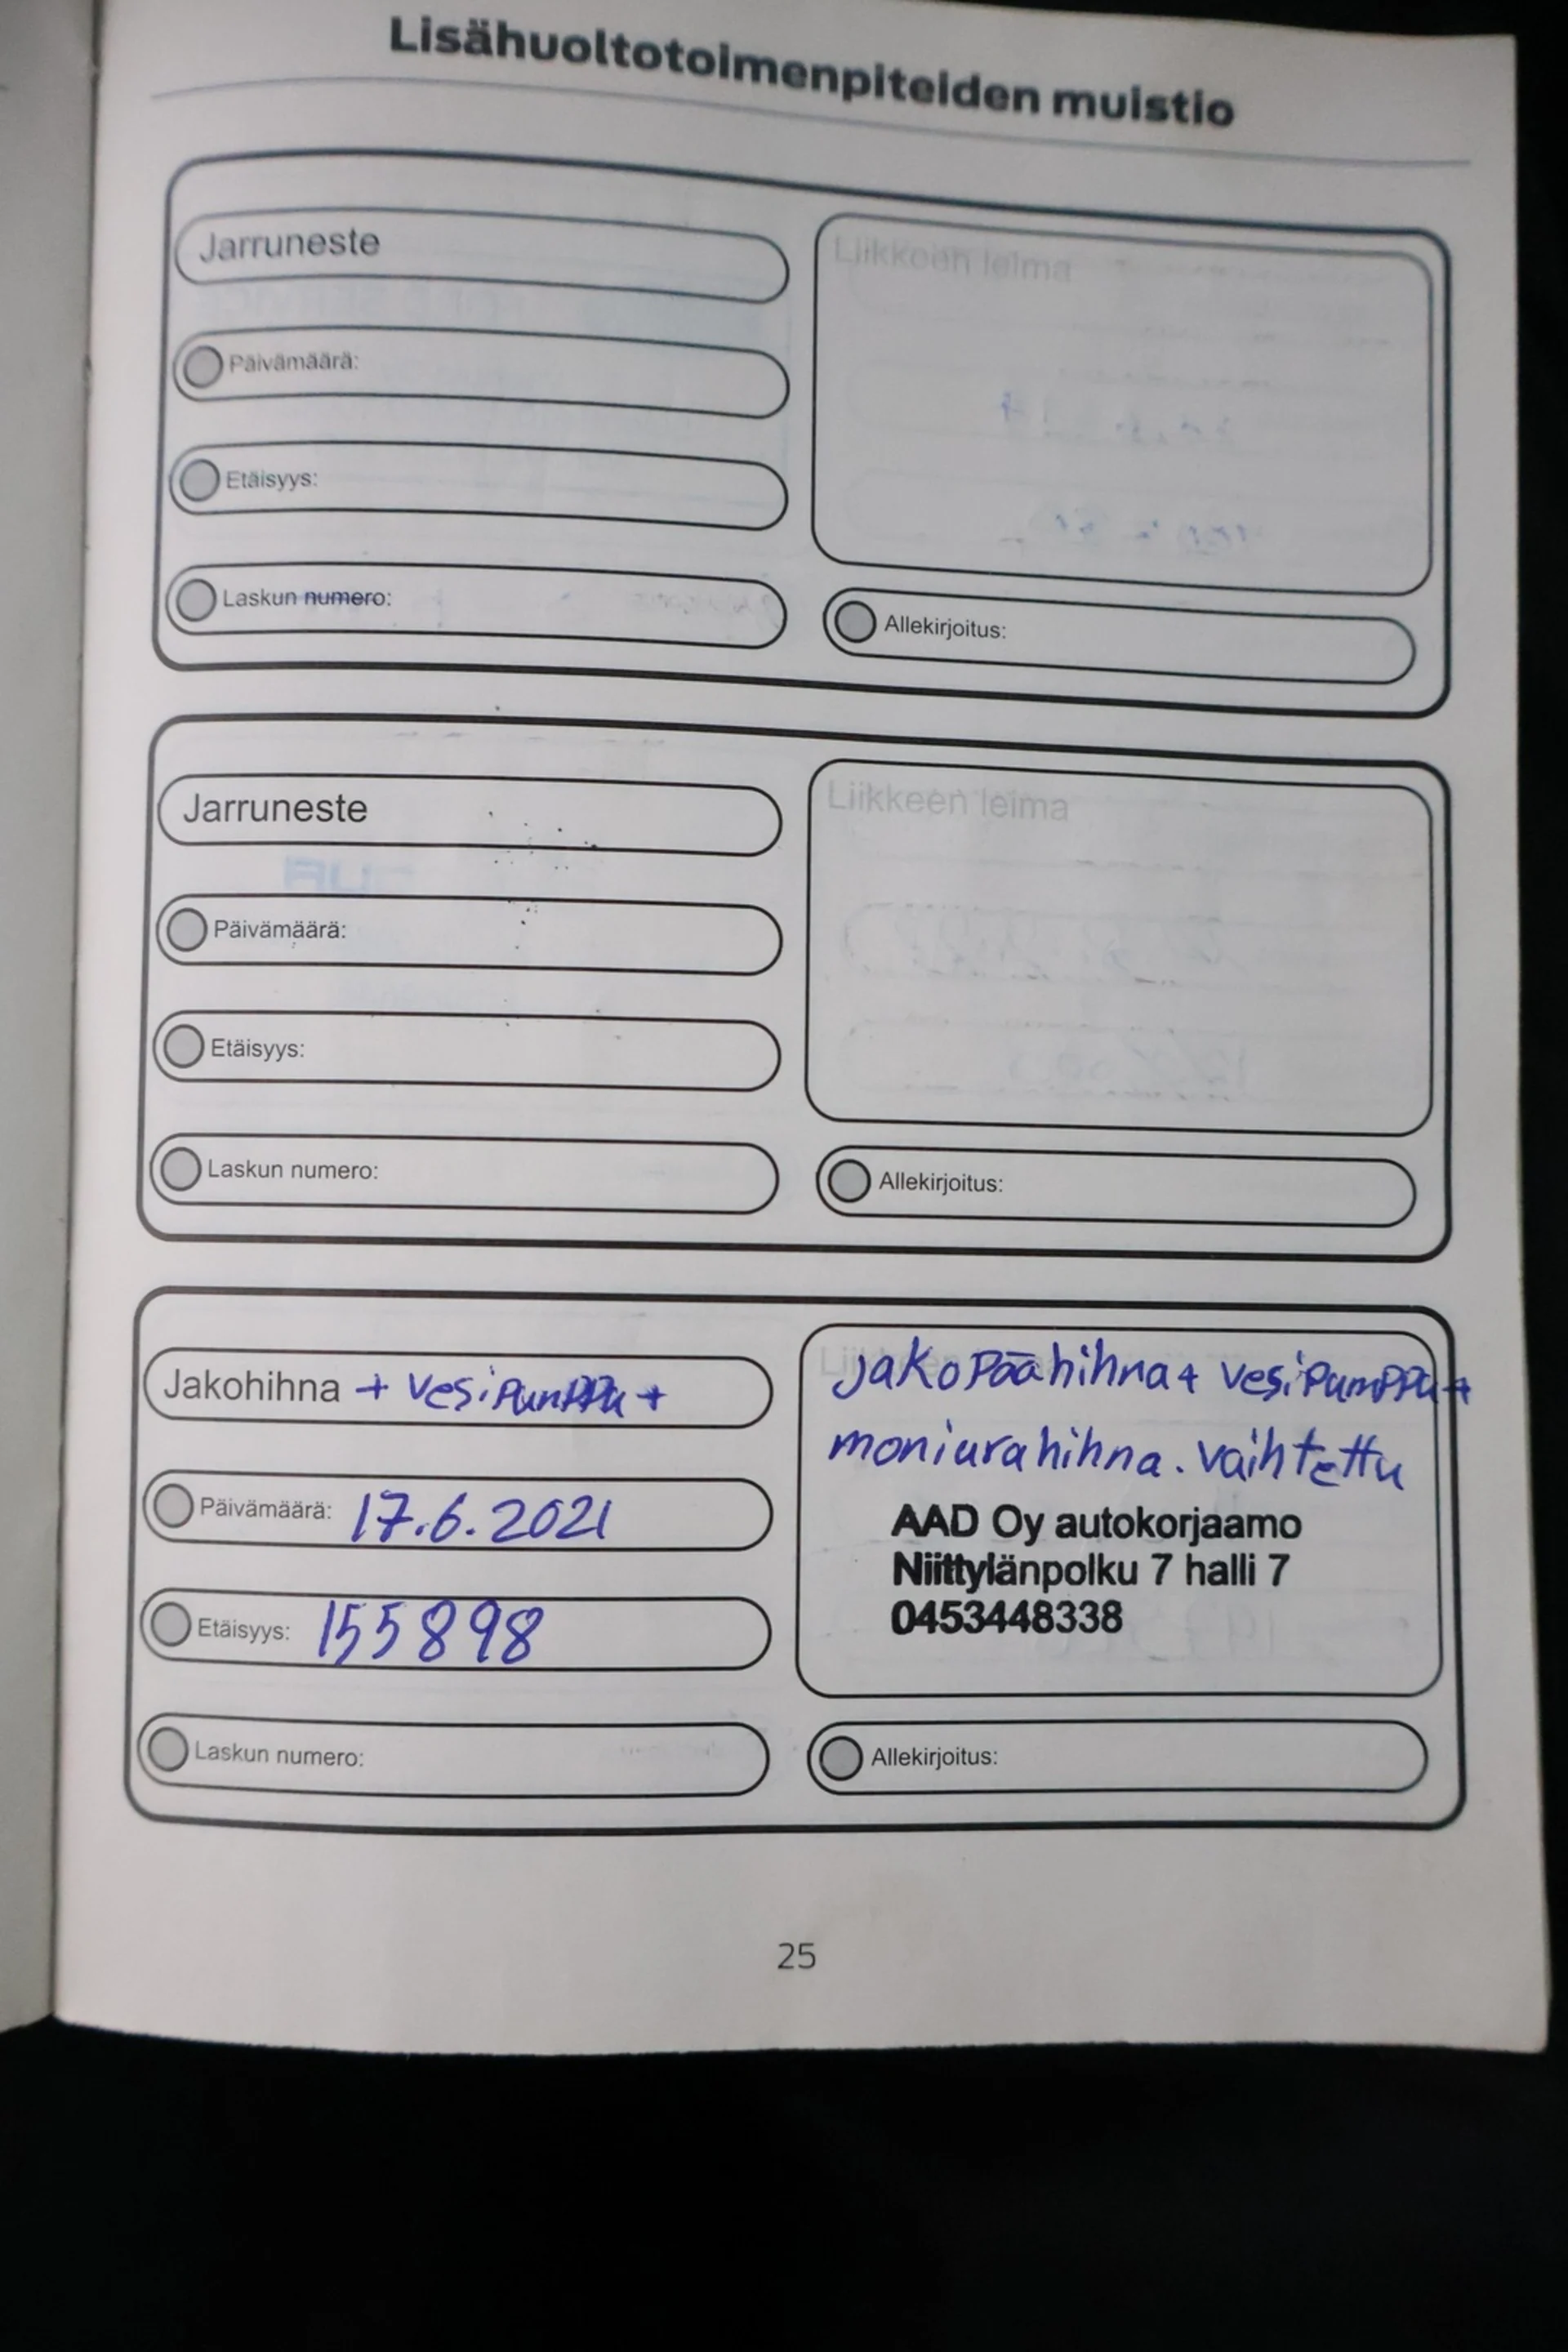 Lisähuoltotoimenpiteiden muistio
Jarruneste
Liikkeen leima
Päivämäärä:
Etäisyys:
Laskun numero:
Allekirjoitus:
Jarruneste
Liikkeen leima
Päivämäärä:
Etäisyys:
Laskun numero:
Allekirjoitus:
Jakohihna + vesipumppu +
Päivämäärä: 17.6.2021
Etäisyys: 155898
Laskun numero:
Liikkeen leima
jakopäähihna + vesipumppu +
moniurahihna. vaihtettu
AAD Oy autokorjaamo
Niittylänpolku 7 halli 7
0453448338
Allekirjoitus:
25